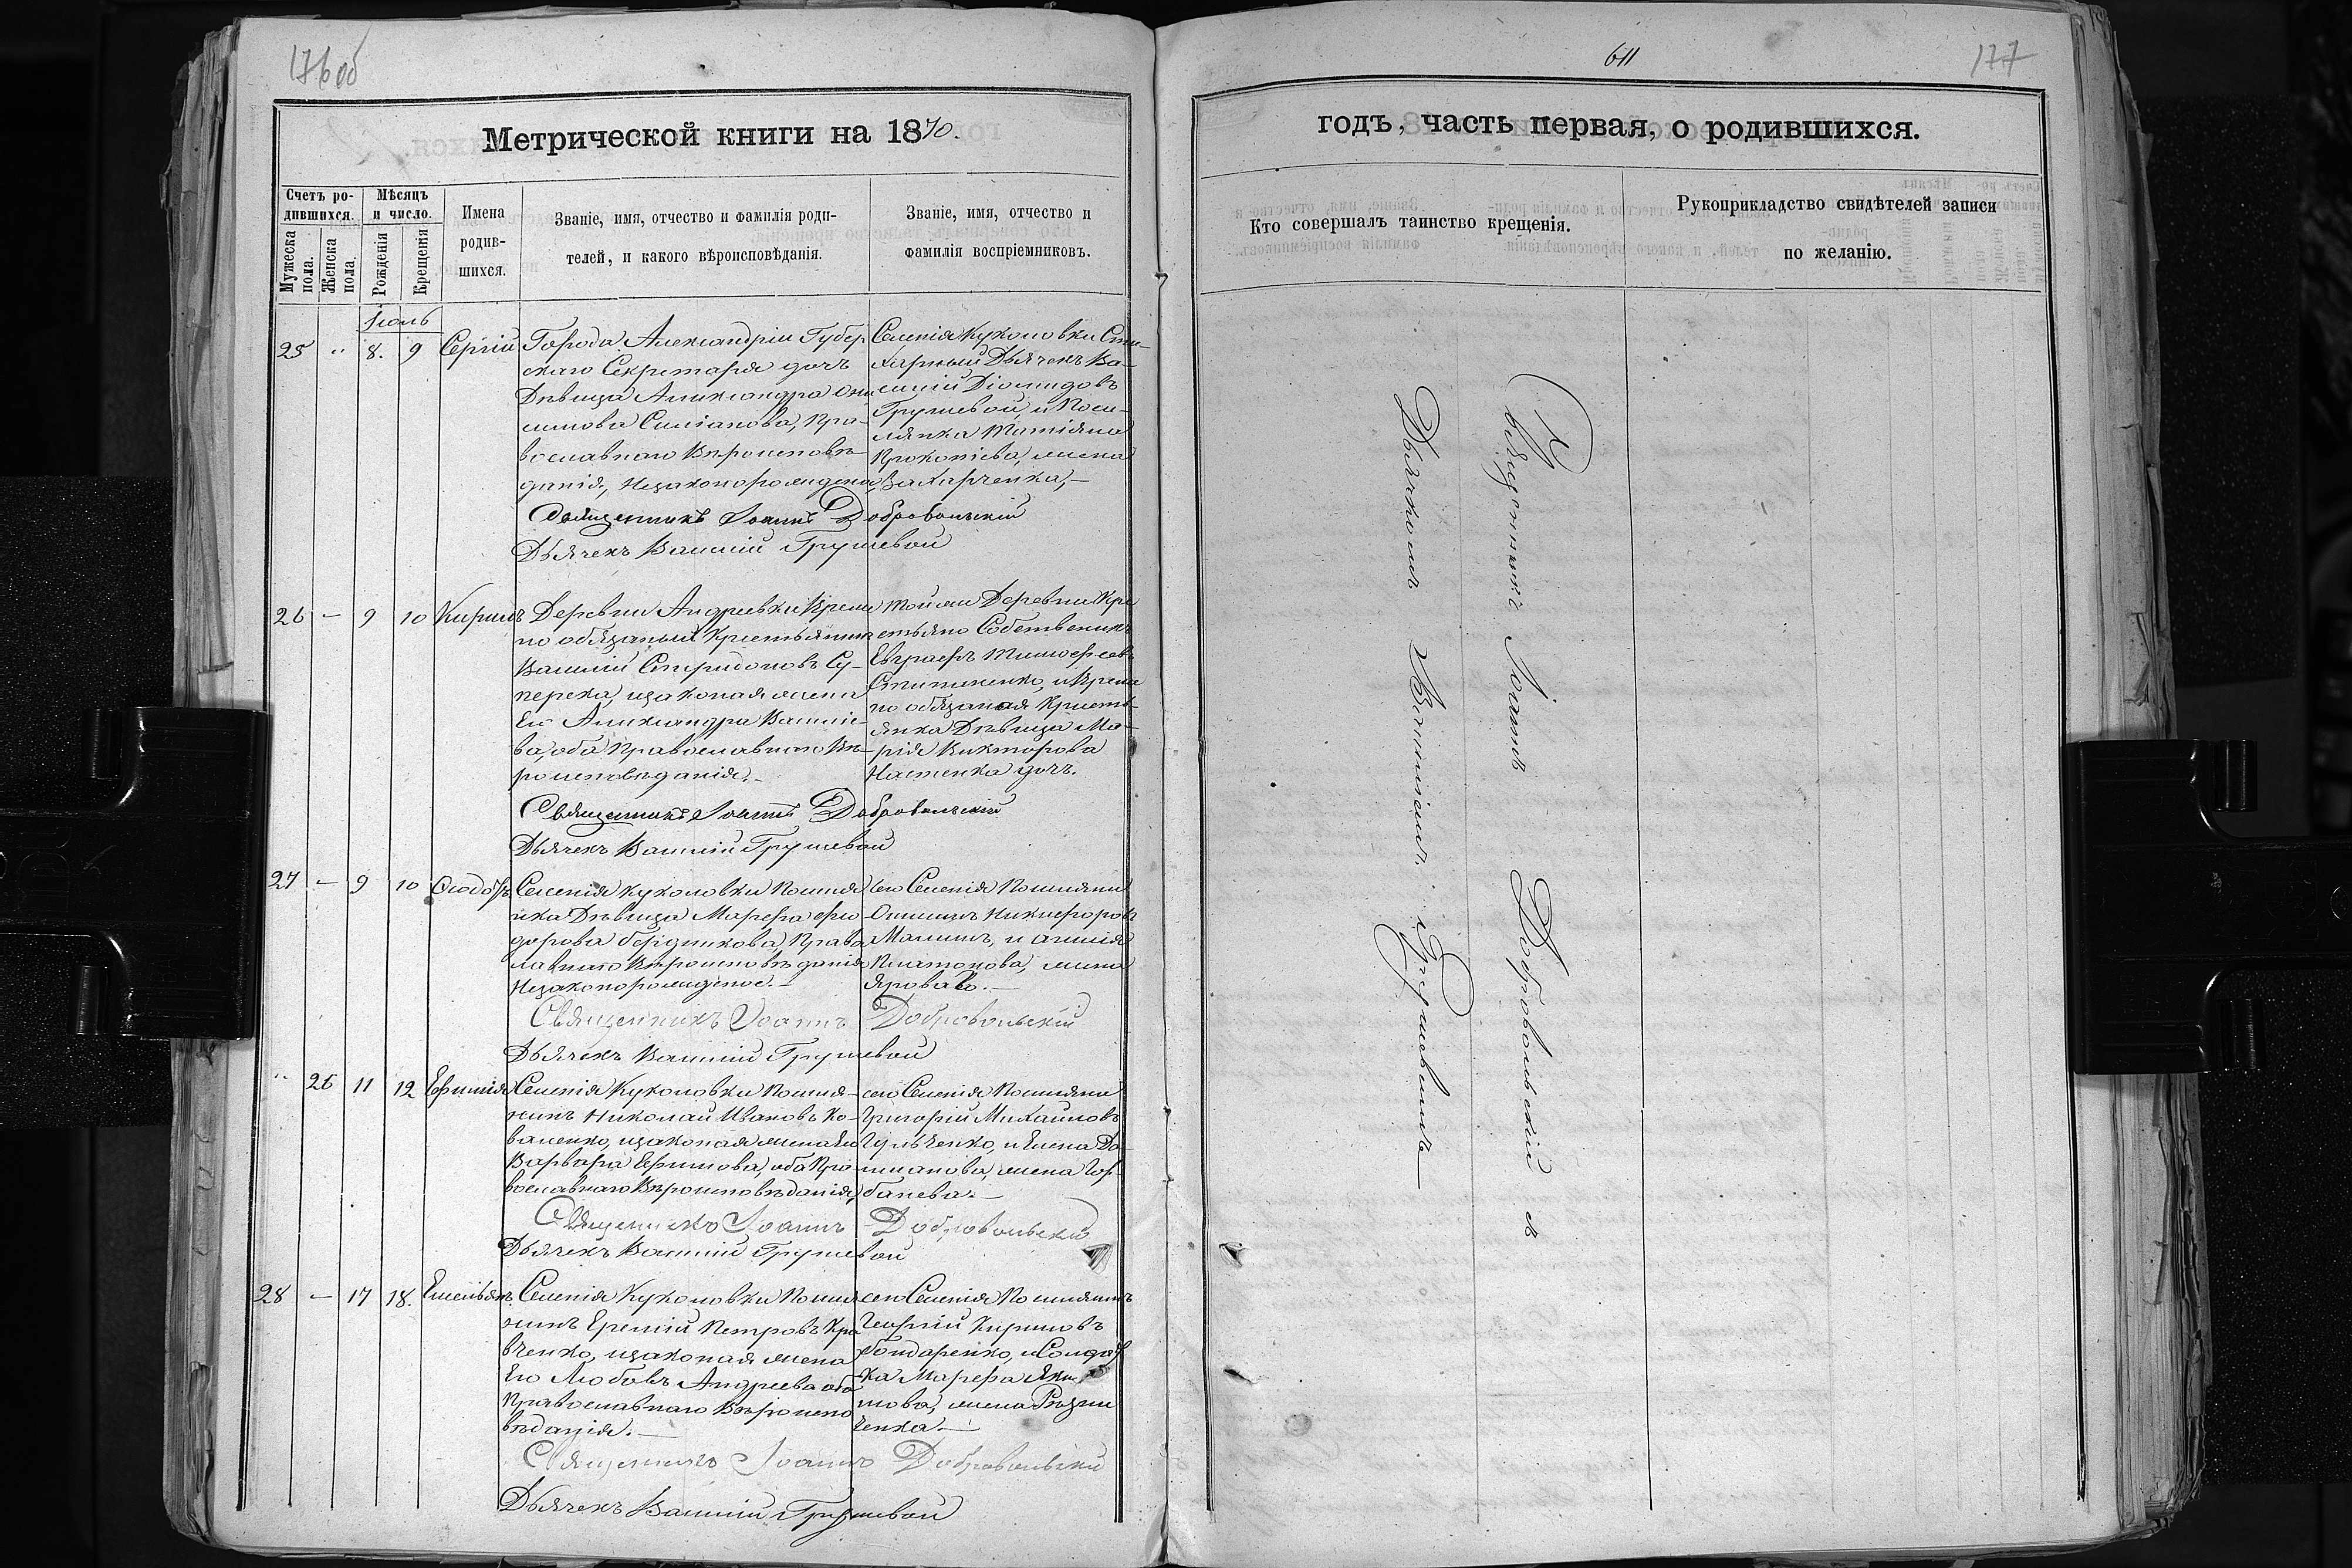 176об
Метрической книги на 1870.
Счетъ ро-
дившихся.
Мѣсяцъ
и число.
Мужеска
пола.
Женска
пола.
Рожденія
Крещенія
Имена
родив-
шихся.
Званіе, имя, отчество и фамилія роди-
телей, и какого вѣроисповѣданія.
Званіе, имя, отчество и
фамилія воспріемниковъ.
Іюль
25 " 8. 9 Сергій
Города Александріи Губер
скаго Секретаря дочь
Дѣвица Александра
Силіанова, Пра-
вославнаго Вѣроисповѣ-
данія, Незаконорожденый
Селенія Куколовки Сти-
харный Дьячекъ Ва-
силій Діомидовъ
Грушевой, и Посе-
лянка Татіяна
Прокопіева, жена
Захарченка,—
Священникъ Іоаннъ Добровольскій
Дьячекъ Василій Грушевой
26 — 9 10 Кирилъ
Деревни Андреевки Време
но обязаный Крестьянин
Василій Спиридоновъ Су-
перека, изаконая жена
Его Александра Василіе-
ва, оба Православнаго Вѣ-
роисповѣданія.—
Тойже Деревни Кре
стьяно Собственикъ
Евграфъ Тимофеевъ
и Време
но обязаная Кресть-
янка Дѣвица Ма-
рія Викторова
Настенка дочь.
Священникъ Іоаннъ Добровольскій
Дьячекъ Василій Грушевой
27 — 9 10 Єодоръ
Селенія Куколовки Поселя
нка Дѣвица Марфа Фео
дорова Бердникова, Право
славнаго Вѣроисповѣданія
Незаконорожденое.—
сего Селенія Поселянин
Никифоровъ
и
Платонова, жена
Яроваго.—
Священникъ Іоаннъ Добровольскій
Дьячекъ Василій Грушевой
" 26 11 12 Ефимія
Селенія Куколовки Поселя-
нинъ Николай Ивановъ Ко-
валенко, изаконая жена Его
Варвара Ефимова, оба Пра-
вославнаго Вѣроисповѣданія,
сего Селенія Поселянин
Григорій Михайловъ
Гульченко, и Елена До-
миановa, жена Гор-
баневa.—
Священникъ Іоаннъ Добровольскій
Дьячекъ Василій Грушевой
28 — 17 18. Емельянъ.
Селенія Куколовки Поселя
нинъ Еремій Петровъ Кра
вченко, изаконая жена
Его Любовь Андреева оба
Православнаго Вѣроиспо
вѣданія.—
сего Селенія Поселянинъ
Георгій Кириловъ
Бондаренко, и Солдат
ка Марфа Яки
мова, жена Рѣзни
ченка.—
Священникъ Іоаннъ Добровольскій
Дьячекъ Василій Грушевой
611
177
годъ, часть первая, о родившихся.
Кто совершалъ таинство крещенія.
Рукоприкладство свидѣтелей записи
по желанію.
Священникъ Іоаннъ Добровольскій съ
Дьячкомъ Василіемъ Грушевымъ